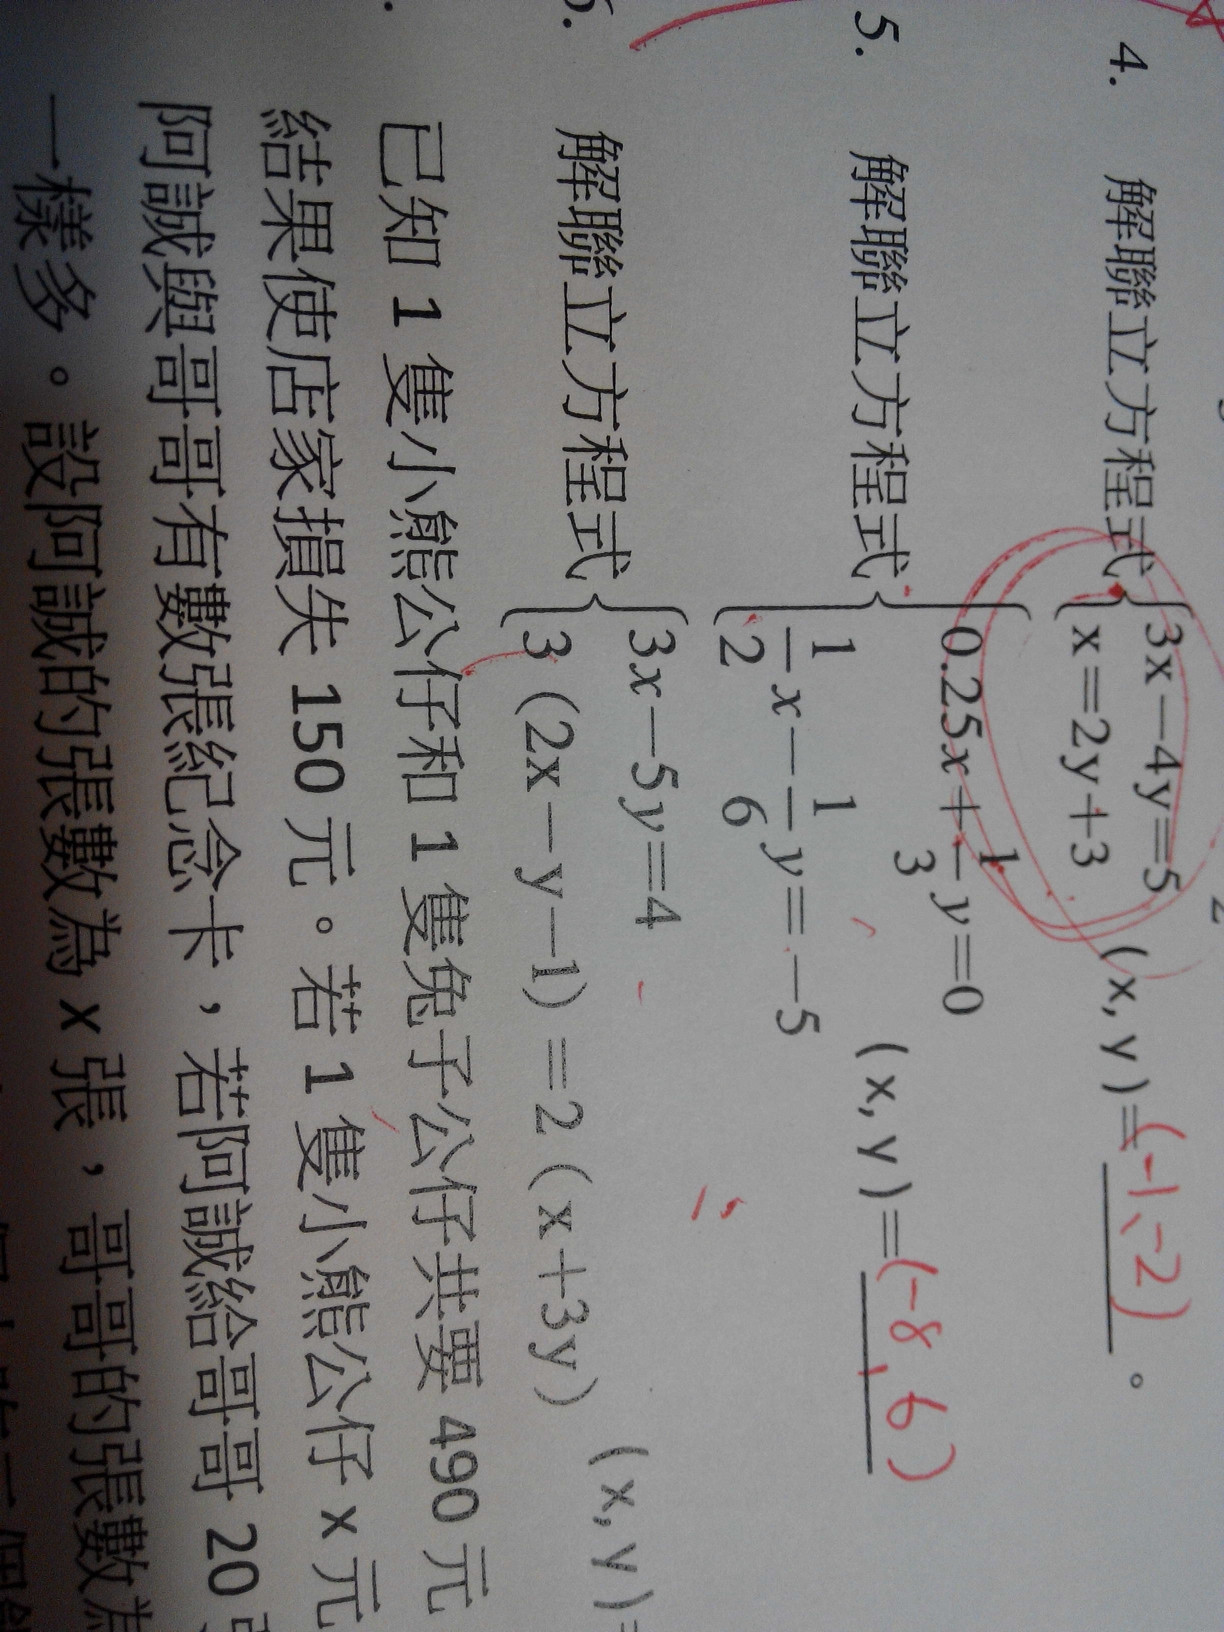 4. 解聯立方程式 { 3x－4y＝5
x＝2y＋3 (x, y)＝(-1,-2)。
5. 解聯立方程式 { 0.25x＋1/3 y＝0
1/2 x－1/6 y＝－5 (x, y)＝(-8,6)
6. 解聯立方程式 { 3x－5y＝4
3 (2x－y－1)＝2 (x＋3y) (x, y)＝
已知 1 隻小熊公仔和 1 隻兔子公仔共要 490 元
結果使店家損失 150 元。若 1 隻小熊公仔 x 元
阿誠與哥哥有數張紀念卡，若阿誠給哥哥 20
一樣多。設阿誠的張數為 x 張，哥哥的張數為